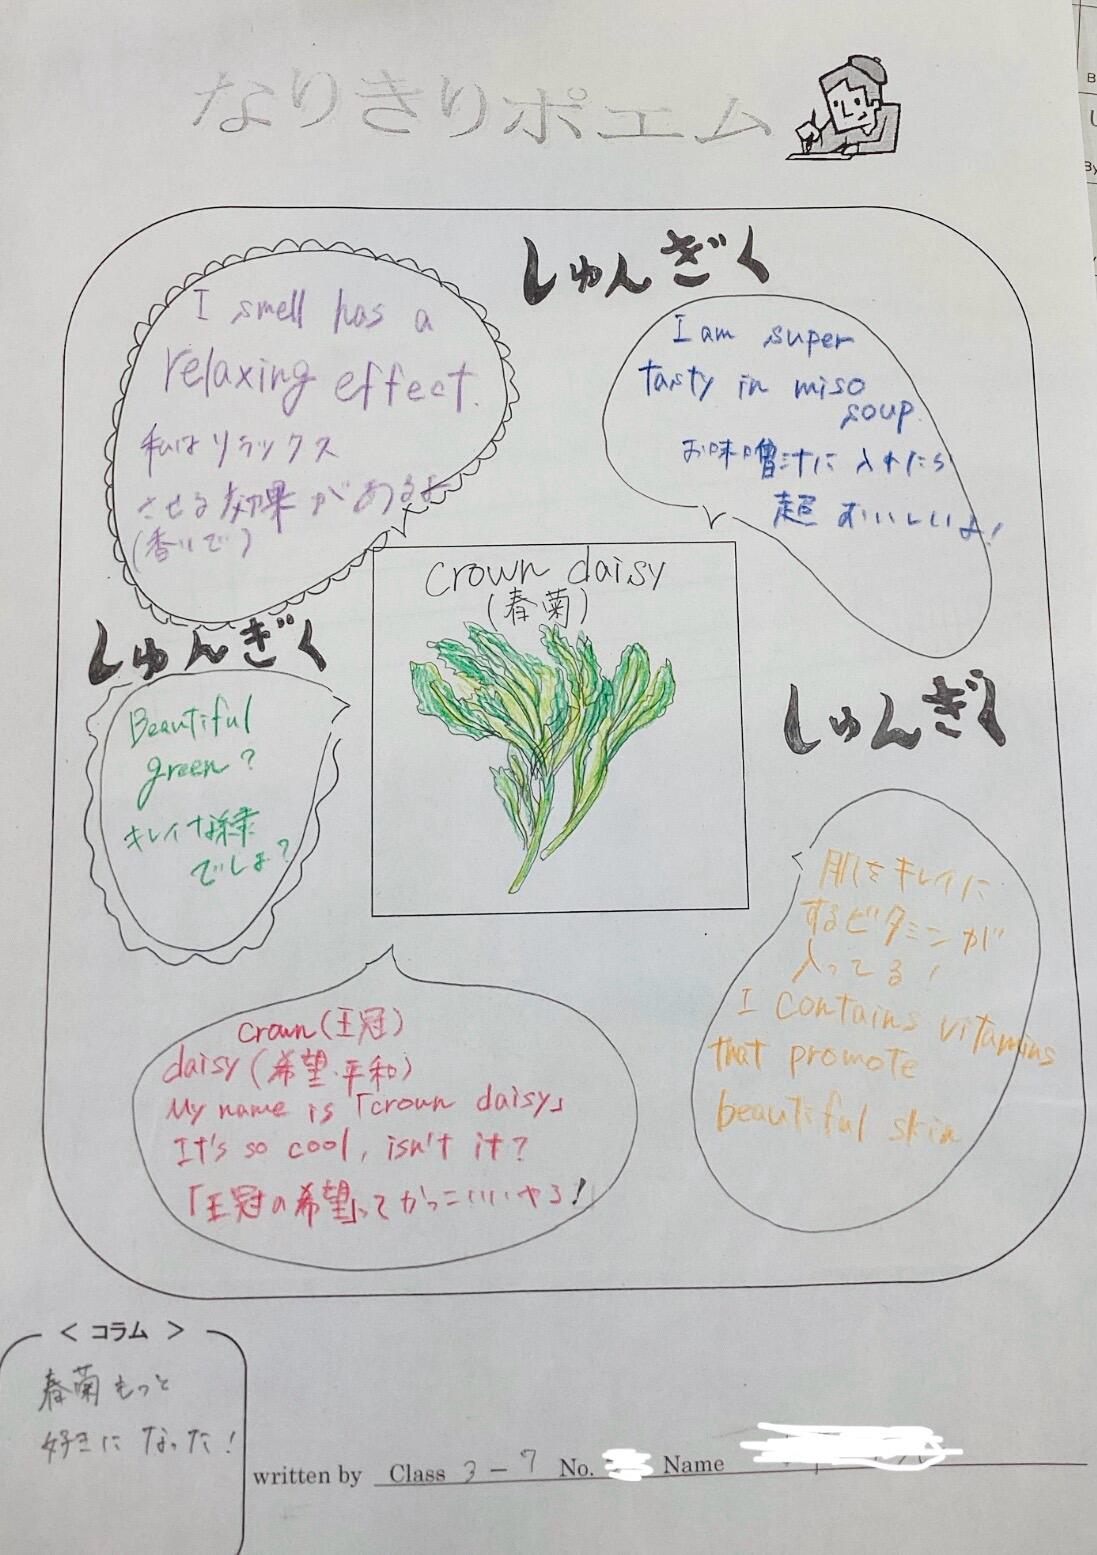 なりきりポエム
しゅんぎく
I smell has a
relaxing effect.
私はリラックス
させる効果があるよ
(香りで)
I am super
tasty in miso
soup.
お味噌汁に入れたら
超おいしいよ!
crown daisy
(春菊)
しゅんぎく
Beautiful
green?
キレイな緑
でしょ?
しゅんぎく
肌をキレイに
するビタミンが
入ってる!
I contains vitamins
that promote
beautiful skin
crown(王冠)
daisy(希望・平和)
My name is「crown daisy」
It's so cool, isn't it?
「王冠の希望」ってかっこいいやろ!
< コラム >
春菊もっと
好きになった!
written by Class 3-7 No. Name